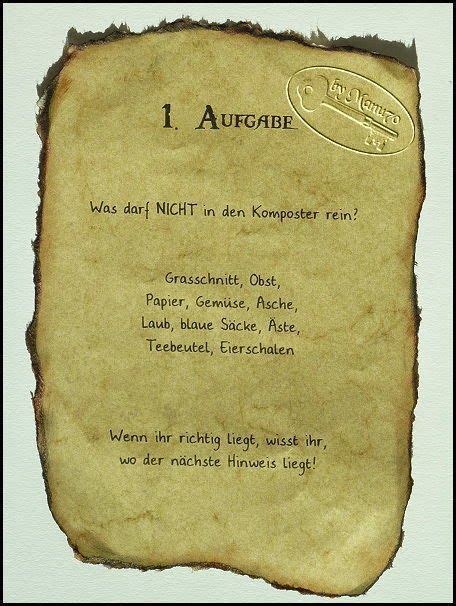 by Manu70
1. AUFGABE
Was darf NICHT in den Komposter rein?
Grasschnitt, Obst,
Papier, Gemüse, Asche,
Laub, blaue Säcke, Äste,
Teebeutel, Eierschalen
Wenn ihr richtig liegt, wisst ihr,
wo der nächste Hinweis liegt!